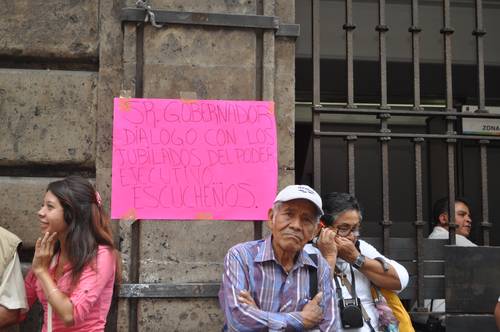 SR. GOBERNADOR
DIALOGO CON LOS
JUBILADOS DEL PODER
EJECUTIVO...
ESCUCHENOS.
ZONA